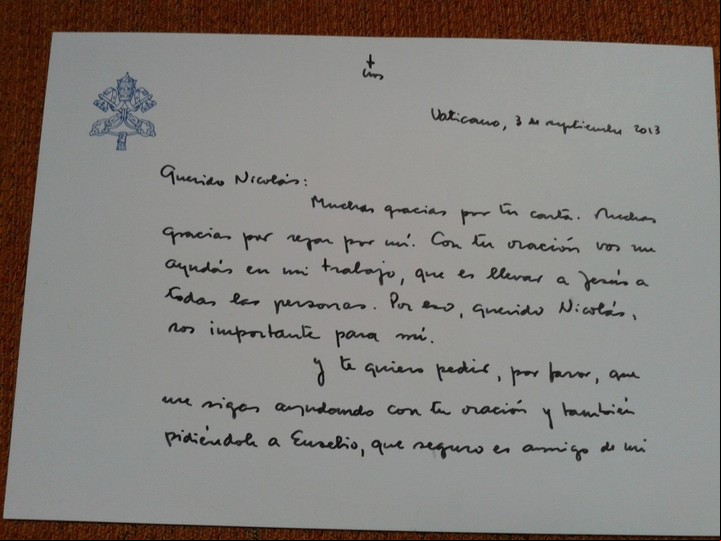 Vaticano, 3 de septiembre 2013
Querido Nicolás:
Muchas gracias por tu carta. Muchas
gracias por rezar por mí. Con tu oración vos me
ayudás en mi trabajo, que es llevar a Jesús a
todas las personas. Por eso, querido Nicolás,
sos importante para mí.
Y te quiero pedir, por favor, que
me sigas ayudando con tu oración y también
pidiéndole a Eusebio, que seguro es amigo de mi